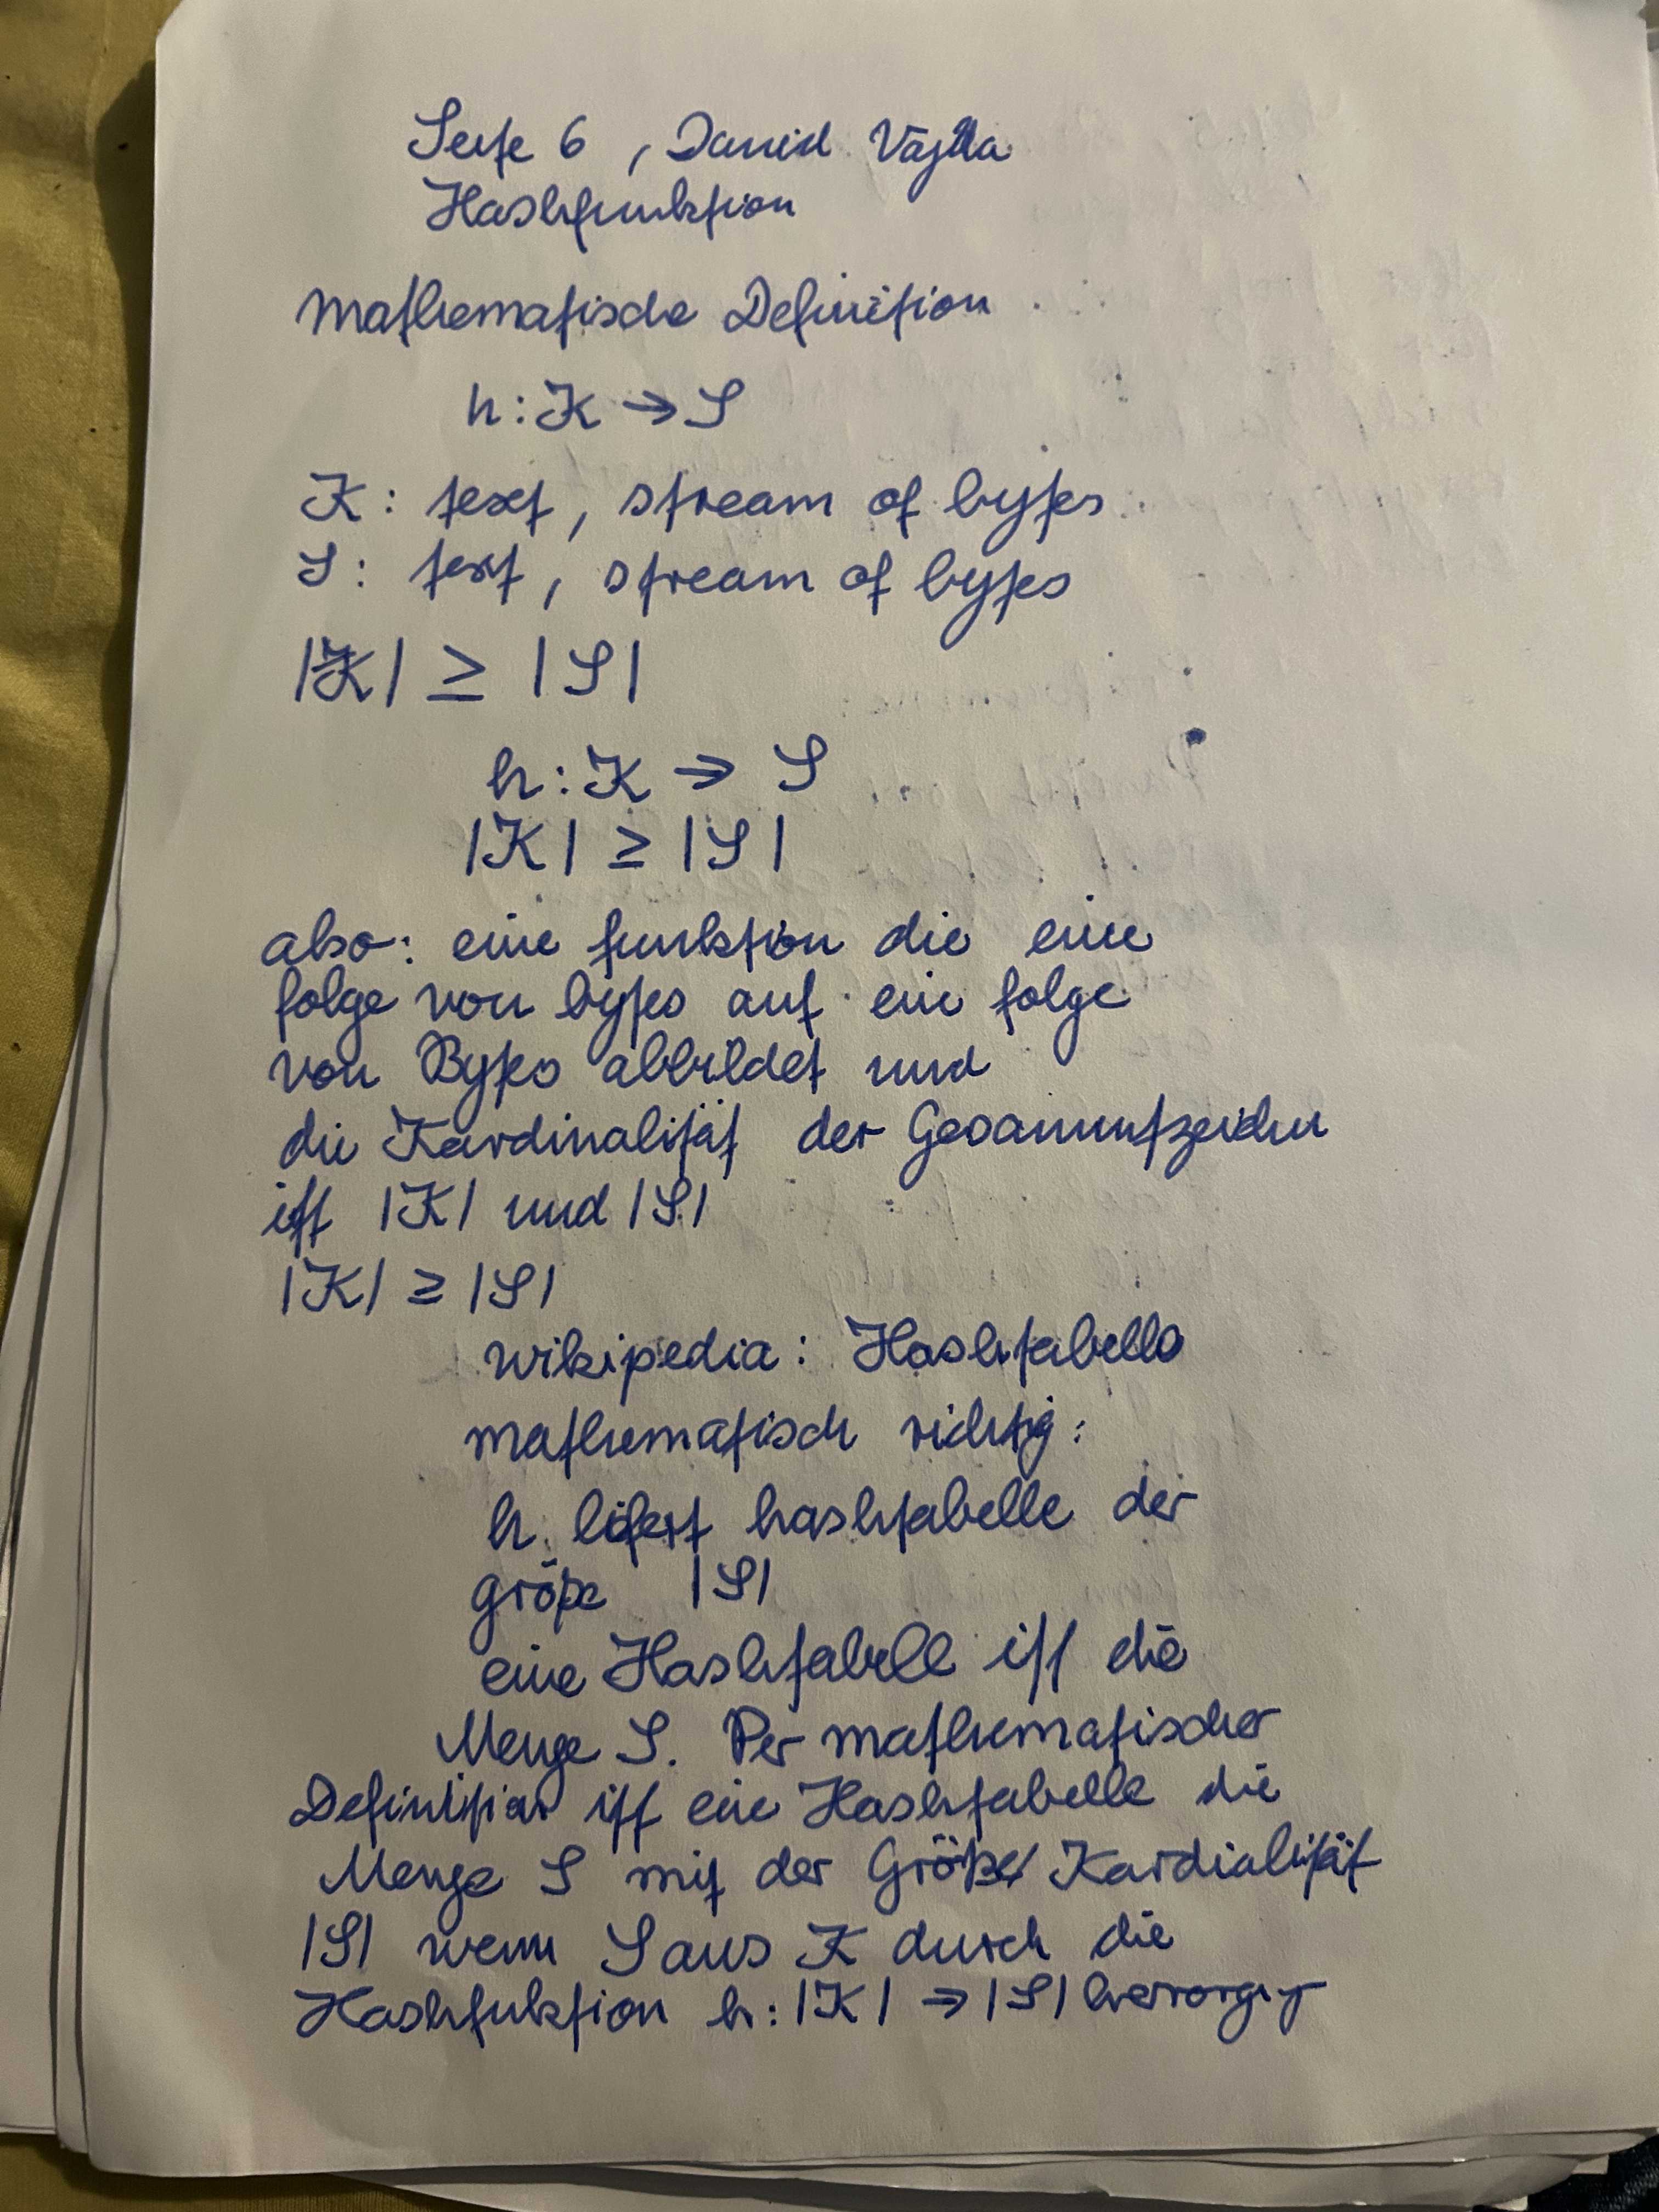 Seite 6, David Vajda
Hashfunktion
Mathematische Definition
h: K → S
K: text, stream of bytes
S: text, stream of bytes
|K| ≥ |S|
h: K → S
|K| ≥ |S|
also: eine funktion die eine
folge von bytes auf eine folge
von Bytes abbildet und
die Kardinalität der Gesamtzeichen
ist |K| und |S|
|K| ≥ |S|
wikipedia: Hashtabelle
mathematisch richtig:
h liefert hashtabelle der
größe |S|
eine Hashtabelle ist die
Menge S. Per mathematischer
Definition ist eine Hashtabelle die
Menge S mit der Größe/Kardialität
|S| wenn S aus K durch die
Hashfuktion h: |K| → |S|